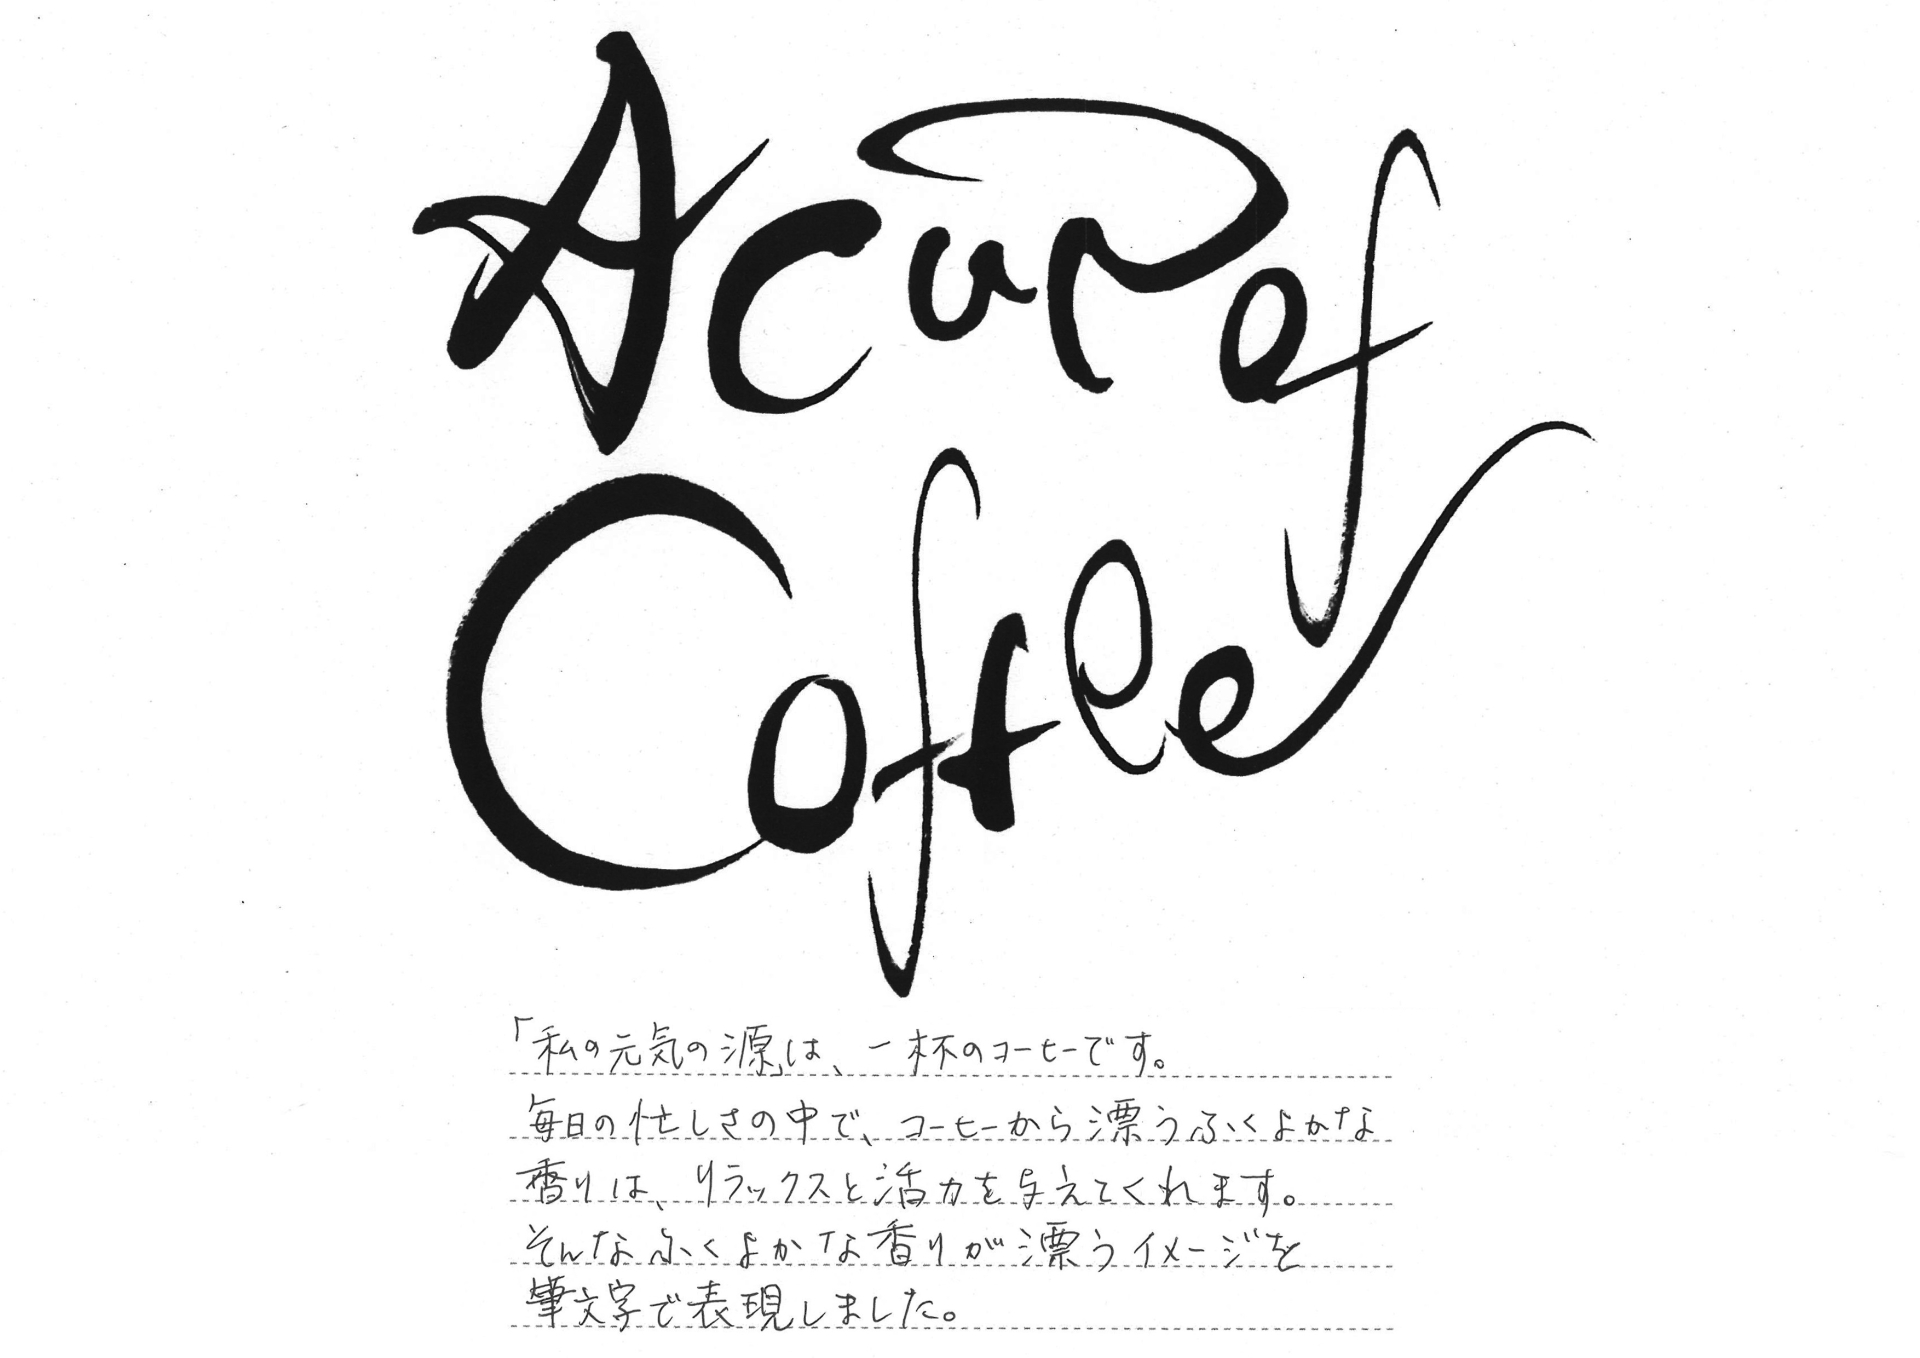 A cup of
Coffee
「私の元気の源」は、一杯のコーヒーです。
毎日の忙しさの中で、コーヒーから漂うふくよかな
香りは、リラックスと活力を与えてくれます。
そんなふくよかな香りが漂うイメージを
筆文字で表現しました。